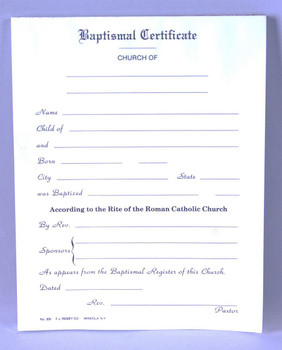 Baptismal Certificate
CHURCH OF
Name
Child of
and
Born
City State
was Baptized
According to the Rite of the Roman Catholic Church
By Rev.
Sponsors
As appears from the Baptismal Register of this Church.
Dated
Rev.
Pastor